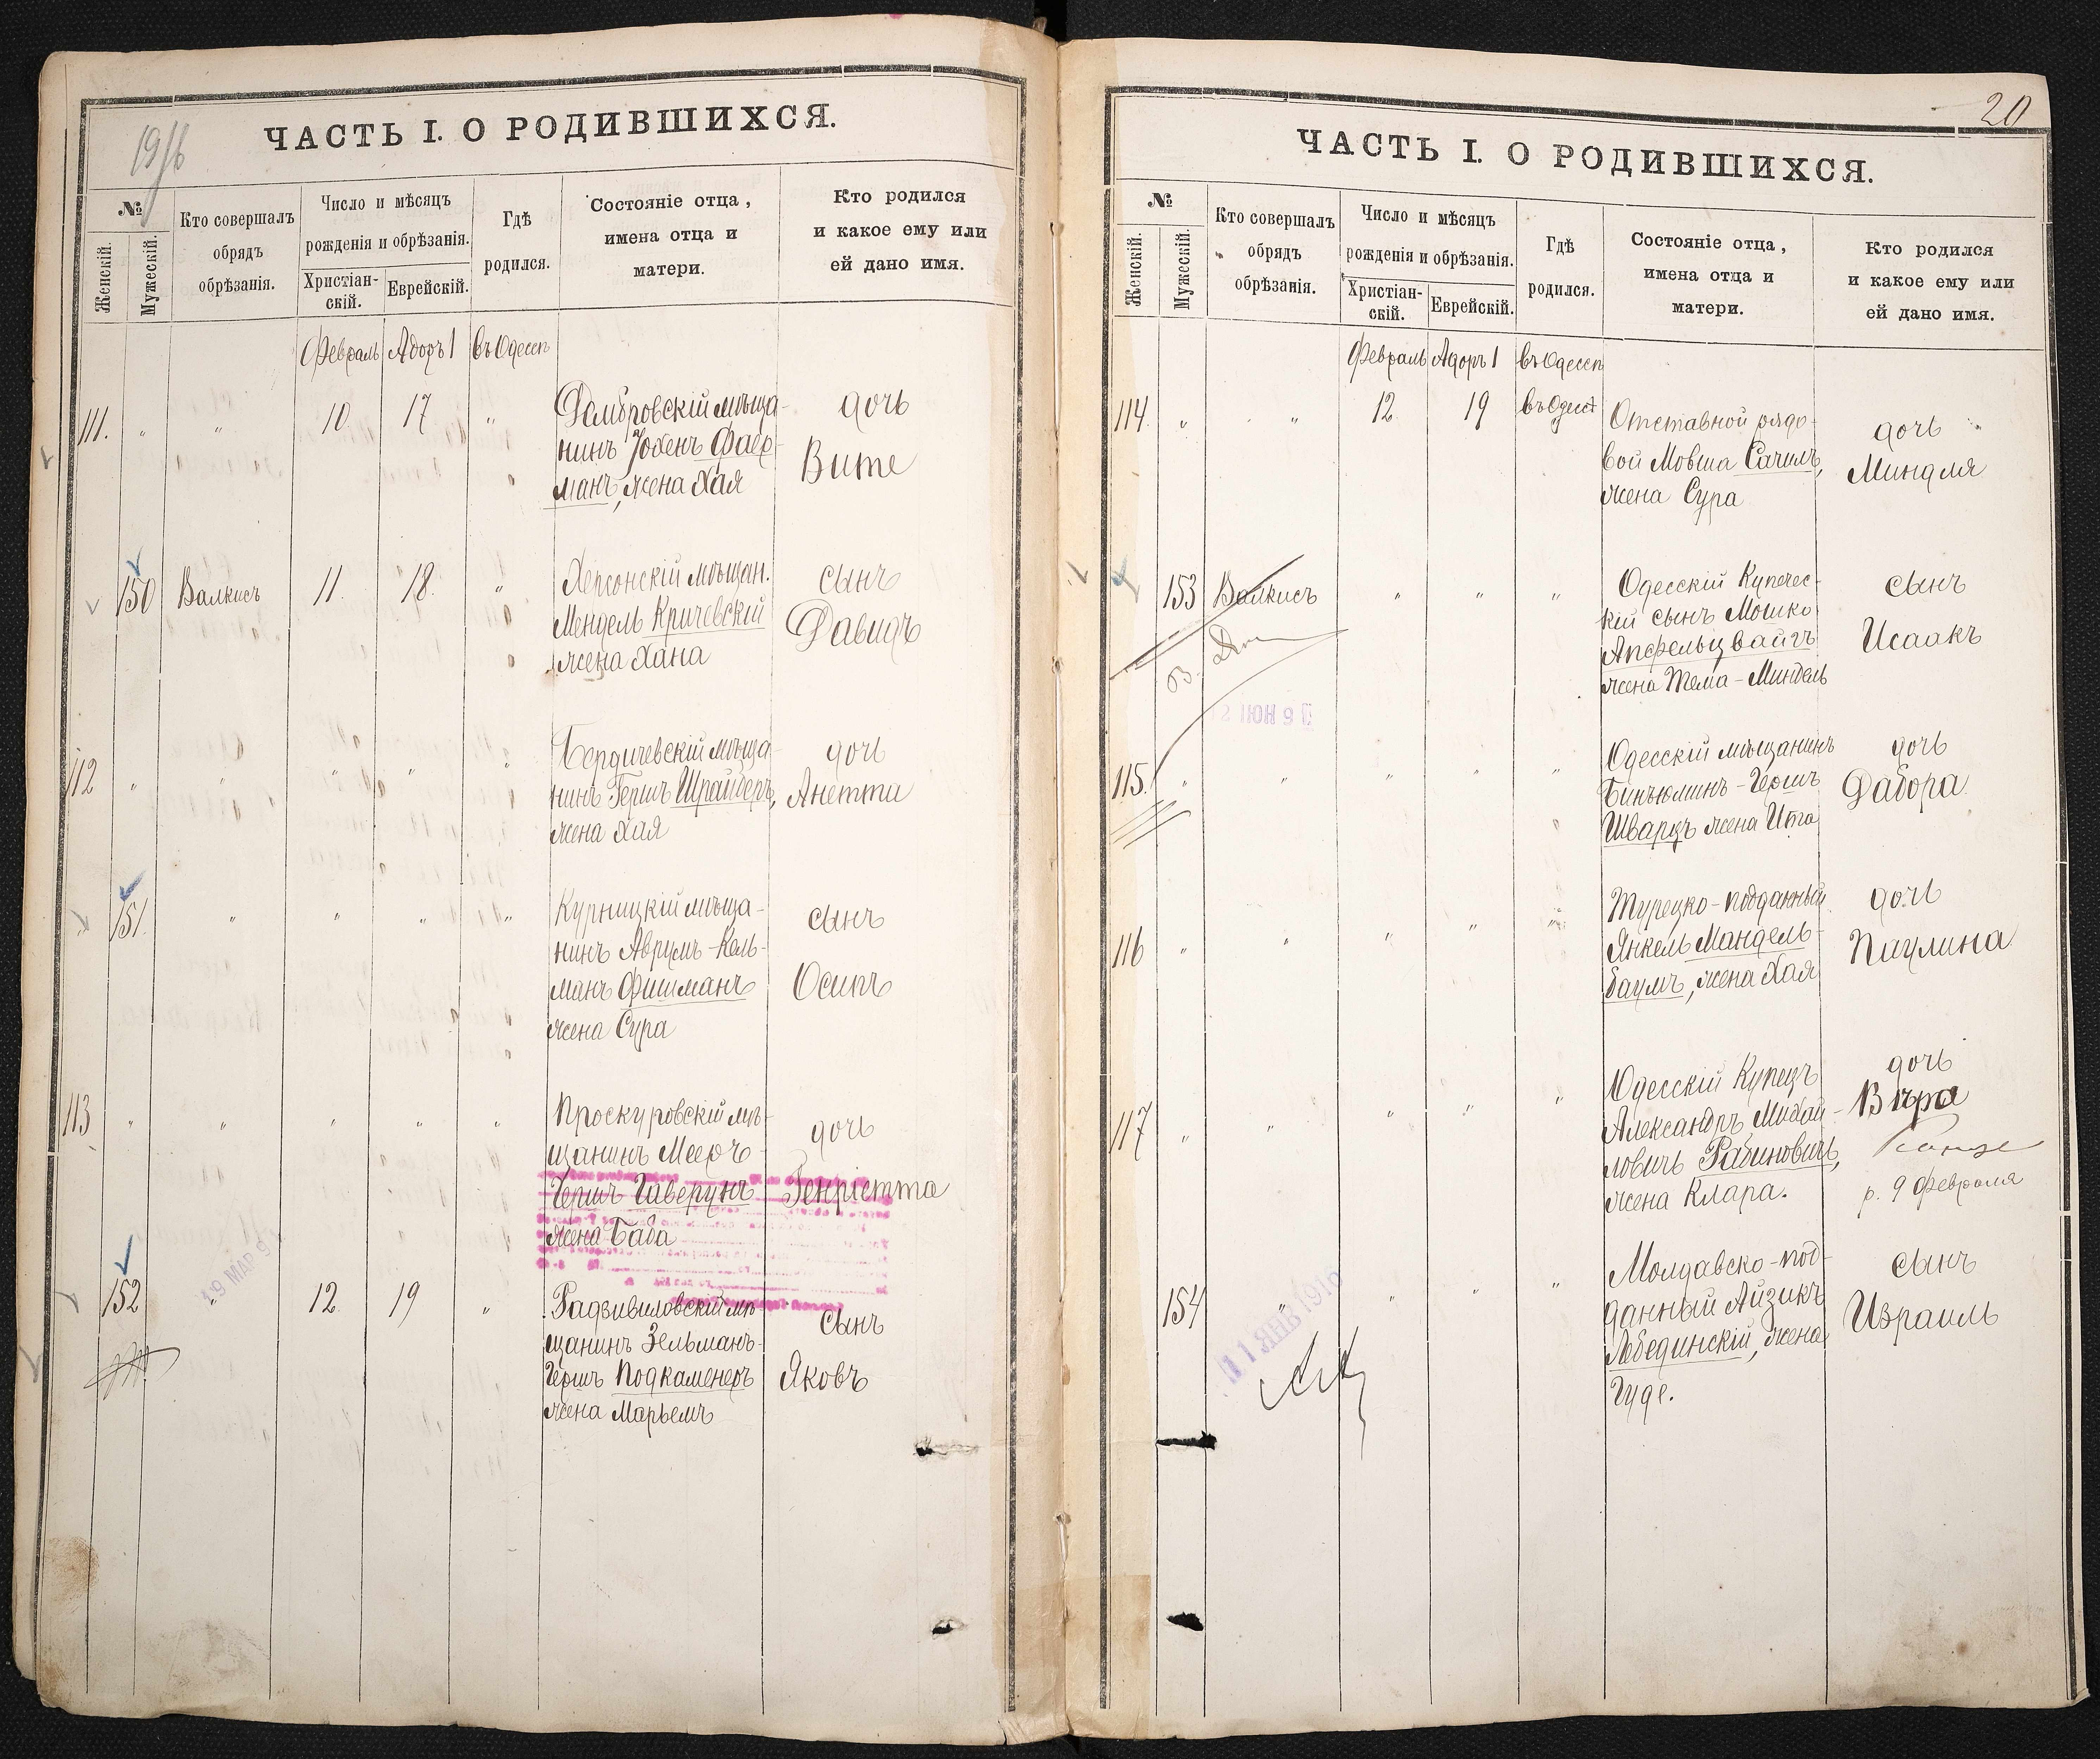 19/6
ЧАСТЬ I. О РОДИВШИХСЯ.
№
Женскій.
Мужескій.
Кто совершалъ
обрядъ
обрѣзанія.
Число и мѣсяцъ
рожденія и обрѣзанія.
Христіан-
скій.
Еврейскій.
Гдѣ
родился.
Состояніе отца,
имена отца и
матери.
Кто родился
и какое ему или
ей дано имя.
Февраль Адоръ 1 въ Одессѣ
111. " " 10 17 "
Домбровскій мѣща-
нинъ Іохенъ Фаер-
манъ, жена Хая
дочь
Вите
150 Валкисъ 11. 18. "
Херсонскій мѣщан.
Мендель Кричевскій
жена Хана
сынъ
Давидъ
112 " " " " "
Бердичевскій мѣща-
нинъ Гершъ Шрайберъ,
жена Хая
дочь
Анетта
151. " " " "
Курницкій мѣща-
нинъ Аврумъ-Кель-
манъ Фишманъ
жена Сура
сынъ
Осипъ
113 " " " " "
Проскуровскій мѣ-
щанинъ Мееръ-
Гершъ Гаверунъ
жена Баба
дочь
Генріетта
19 МАР 9
152 " 12. 19 "
Радзивиловскій мѣ-
щанинъ Зельманъ-
Гершъ Подкаменеръ
жена Марьемъ
сынъ
Яковъ
20
ЧАСТЬ I. О РОДИВШИХСЯ.
№
Женскій.
Мужескій.
Кто совершалъ
обрядъ
обрѣзанія.
Число и мѣсяцъ
рожденія и обрѣзанія.
Христіан-
скій.
Еврейскій.
Гдѣ
родился.
Состояніе отца,
имена отца и
матери.
Кто родился
и какое ему или
ей дано имя.
Февраль Адоръ 1 въ Одессѣ
114. " " 12. 19 въ Одесѣ
Отставной рядо-
вой Мовша Сачилъ,
жена Сура
дочь
Миндля
153 Валкисъ " " "
Одесскій Купечес-
кій сынъ Мошко
Апфельцвайгъ
жена Тема-Миндель
сынъ
Исаакъ
12 ІЮН 9
115. " " " " "
Одесскій мѣщанинъ
Биньюминъ-Гершъ
Шварцъ жена Ита
дочь
Дабора
116 " " " " "
Турецко-подданный
Янкель Мандель-
баумъ, жена Хая
дочь
Паулина
117 " " " " "
Одесскій Купецъ
Александръ Михай-
ловичъ Рабиновичъ,
жена Клара.
дочь
Вѣра
р. 9 февраля
154 " " " "
Молдавско-под-
данный Айзикъ
Лебединскій, жена
Гуде.
сынъ
Израиль
11 ЯНВ 1910